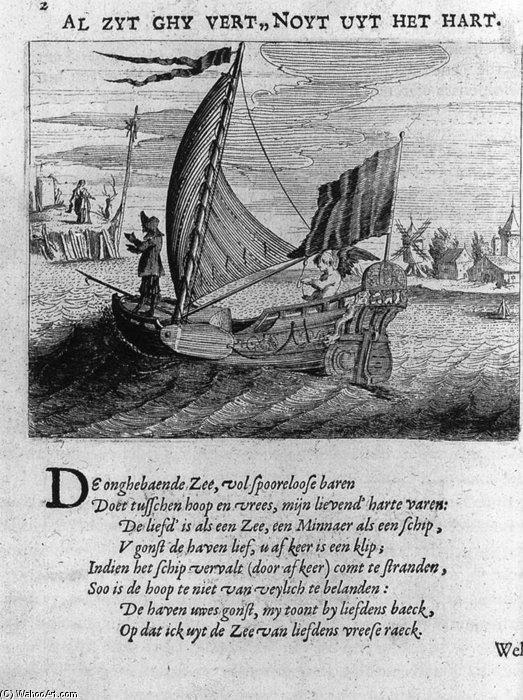 2
AL ZYT GHY VERT,, NOYT UYT HET HART.
DE onghebaende Zee, vol spooreloose baren
Doet tusschen hoop en vrees, mijn lievend' harte varen:
De liefd' is als een Zee, een Minnaer als een schip,
V gonst de haven lief, u afkeer is een klip;
Indien het schip vervalt (door afkeer) comt te stranden,
Soo is de hoop te niet van veylich te belanden:
De haven uwes gonst, my toont by liefdens baeck,
Op dat ick uyt de Zee van liefdens vreese raeck.
Wel
(C) WahooArt.com